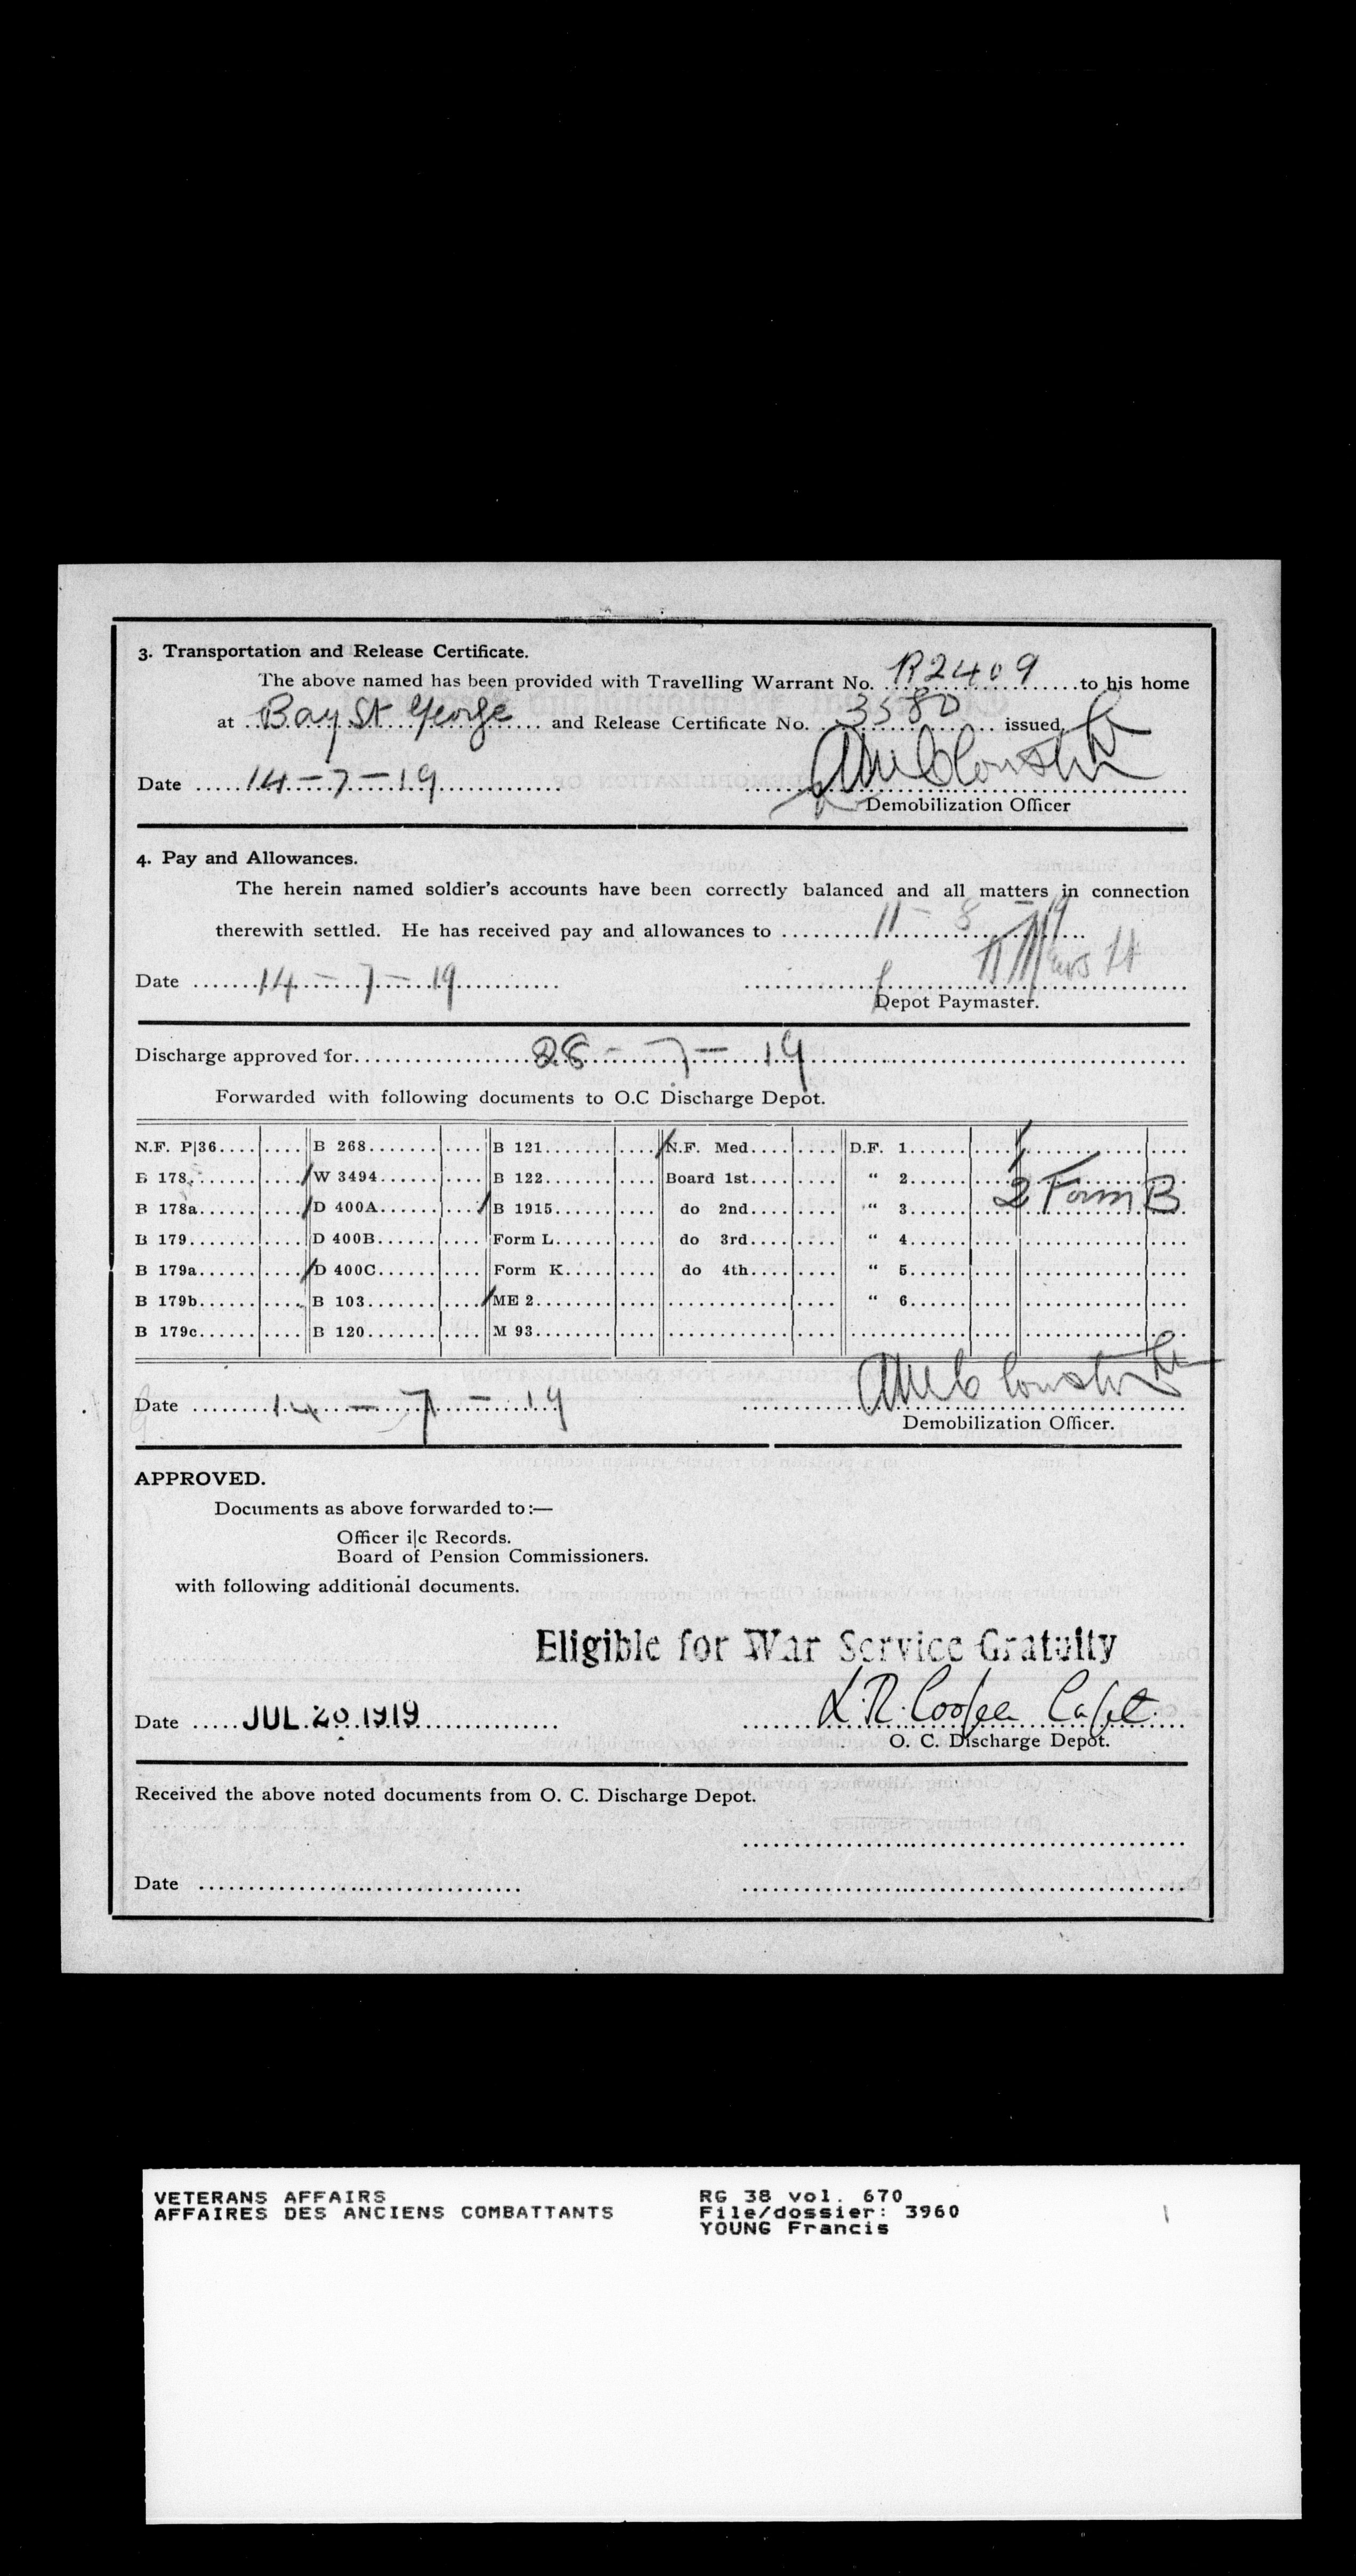 3. Transportation and Release Certificate.
The above named has been provided with Travelling Warrant No. R2409 to his home
at Bay St George and Release Certificate No. 3580 issued,
Date 14-7-19
Demobilization Officer
4. Pay and Allowances.
The herein named soldier's accounts have been correctly balanced and all matters in connection
therewith settled. He has received pay and allowances to 11-8-19
Date 14-7-19
Depot Paymaster.
Discharge approved for 28-7-19
Forwarded with following documents to O.C Discharge Depot.
N.F. P|36 B 268 B 121 N.F. Med. D.F. 1
B 178 W 3494 B 122 Board 1st " 2
B 178a D 400A B 1915 do 2nd " 3 2 Form B
B 179 D 400B Form L do 3rd " 4
B 179a D 400C Form K do 4th " 5
B 179b B 103 ME 2 " 6
B 179c B 120 M 93
Date 14-7-19
Demobilization Officer.
APPROVED.
Documents as above forwarded to:—
Officer i|c Records.
Board of Pension Commissioners.
with following additional documents.
Eligible for War Service Gratuity
Date JUL 20 1919 L.R. Cooper Capt.
O. C. Discharge Depot.
Received the above noted documents from O. C. Discharge Depot.
Date
VETERANS AFFAIRS RG 38 vol. 670
AFFAIRES DES ANCIENS COMBATTANTS File/dossier: 3960
YOUNG Francis